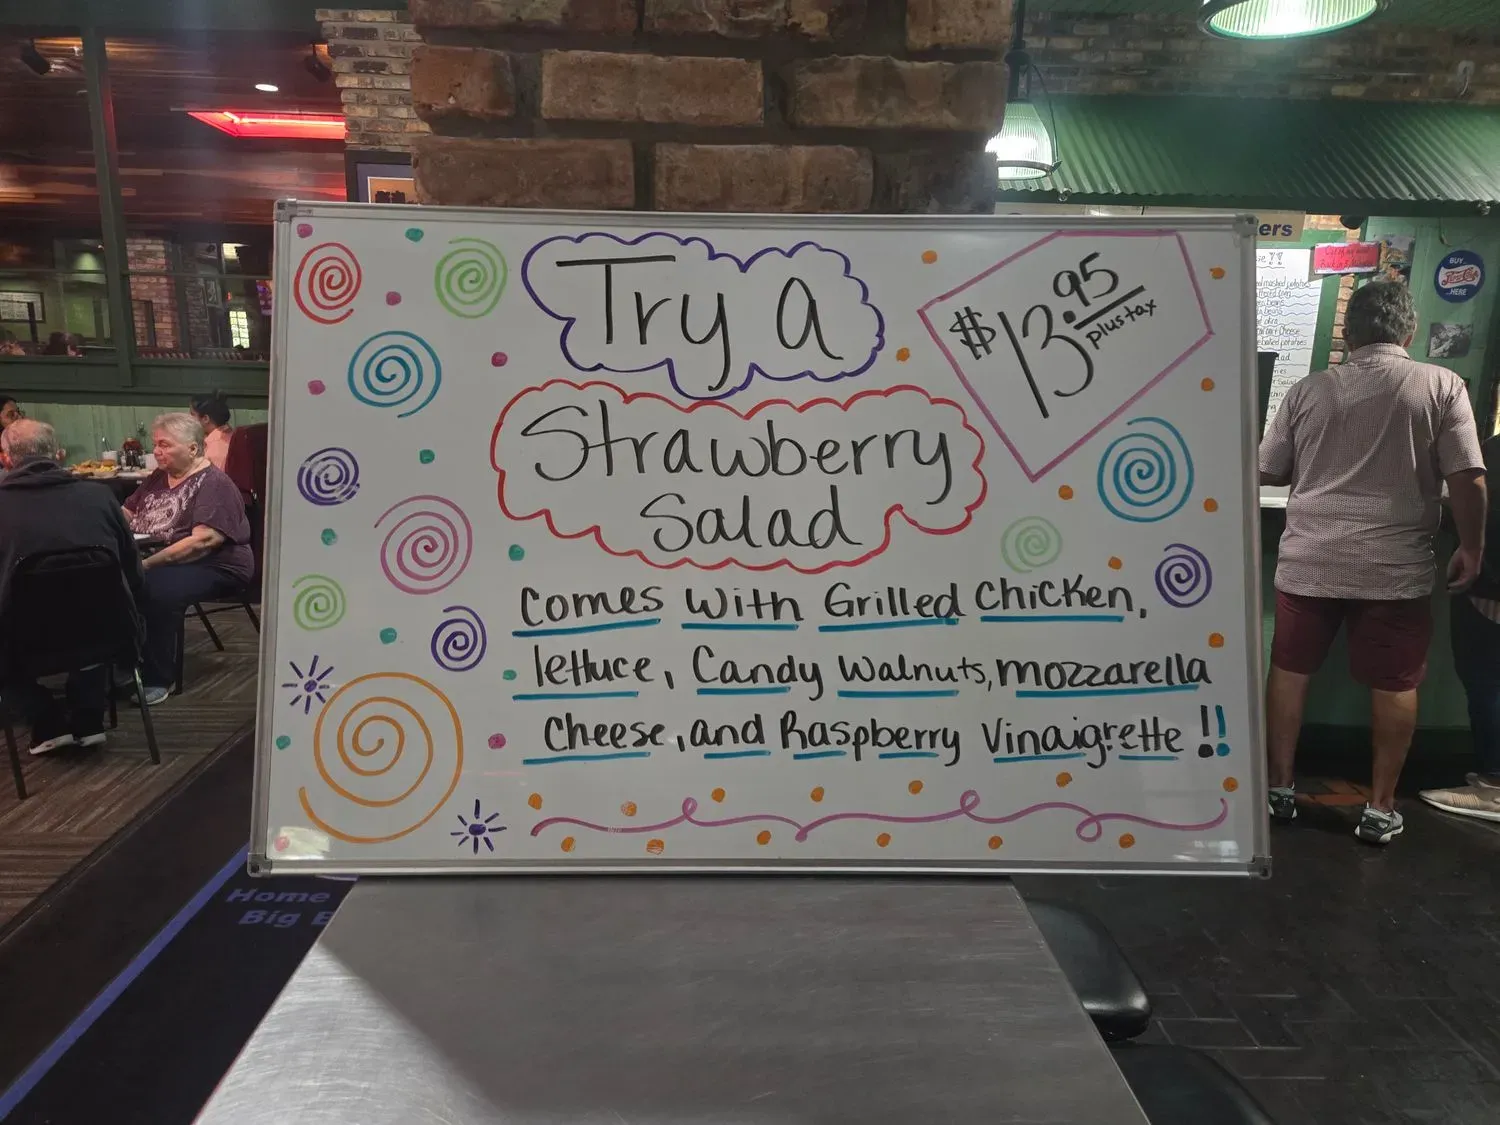 Try a
Strawberry
Salad
$13.95
plus tax
Comes with Grilled Chicken,
lettuce, Candy Walnuts, mozzarella
Cheese, and Raspberry Vinaigrette!!
ers
BUY
Pepsi-Cola
HERE
Home
Big